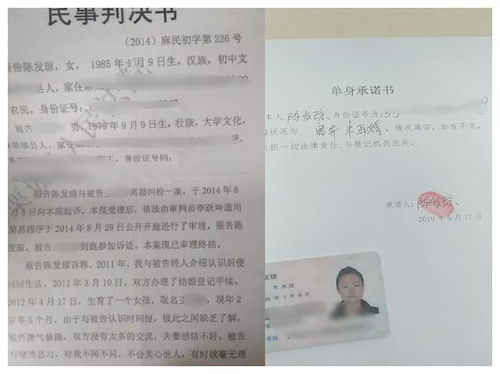 民事判决书
（2014）麻民初字第226号
原告陈发琼，女，1985年1月9日生，汉族，初中文
县人，家住麻
农民，身份证号：
被告 男，1979年9月9日生，壮族，大学文化，
县人，家住
身份证号码：
原告陈发琼与被告 离婚纠纷一案，于2014年8
月8日向本院起诉。本院受理后，依法由审判员李跃坤适用
简易程序于2014年8月28日公开开庭进行了审理，原告陈
发琼、被告 到庭参加诉讼。本案现已审理终结。
原告陈发琼诉称，2011年，我与被告经人介绍认识后便
同居生活，2012年3月19日，双方办理了结婚登记手续。
2012年4月17日，生育了一个女孩，取名 ，现年2
岁零5个月。由于与被告认识时间短，彼此之间缺乏了解。
被告脾气暴躁，双方没有太多的交流，夫妻感情不好。被告
恶习，对我不闻不问，不会关心他人，有时候毫无理
单身承诺书
本人 陈发琼，身份证号为：
婚姻状况为 离异未再婚，情况属实，如有不实，
承担一切法律责任，与登记机关无关。
承诺人：陈发琼
2019年5月17日
发琼
民族 汉
1985年1月9日